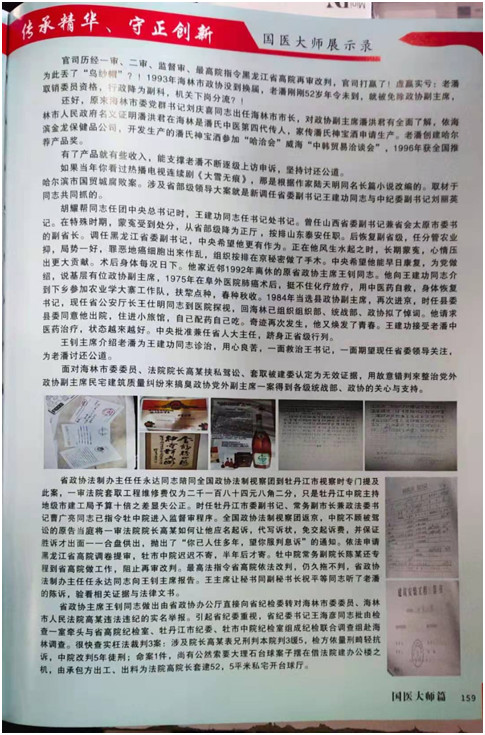 传承精华、守正创新
国医大师展示录
官司历经一审、二审、监督审、最高院指令黑龙江省高院再审改判，官司打赢了！虚赢实亏；老潘
为此丢了“乌纱帽”？！1993年海林市政协没到换届，老潘刚刚52岁年令未到，就被免除政协副主席，
取销委员资格，行政降为副科，机关下岗分流？！
还好，原来海林市委党群书记刘庆喜同志出任海林市市长，对政协副主席潘洪君有全面了解，依海
林市人民政府名义证明潘洪君在海林是潘氏中医第四代传人，家传潘氏神宝酒申请生产。老潘创建哈尔
滨金龙保健品公司，开发生产的潘氏神宝酒参加“哈洽会”威海“中韩贸易洽谈会”，1996年获全国推
荐产品奖。
有了产品就有些收入，能支撑老潘不断逐级上访申诉，坚持讨还公道。
如果当年你看过热播电视连续剧《大雪无痕》，那是根据作家陆天明同名长篇小说改编的。取材于
哈尔滨市国贸城腐败案。涉及省部级领导大案就是新调任省委副书记王建功同志与中纪委副书记刘丽英
同志共同抓的。
胡耀帮同志任团中央总书记时，王建功同志任书记处书记。曾任山西省委副书记兼省会太原市委书
记。在特殊时期，蒙冤受到处分，从省部级降为正厅，按排山东泰安任职。后恢复副省级，任分管农业
的副省长。调任黑龙江省委副书记，中央希望他更有作为。正在他风生水起之时，长期蒙冤，心情压
抑，局势一好，罪恶地癌细胞出来作乱，组织按排在京秘密做了手术。中央希望他能早日康复，为党做
出更大贡献。术后身体每况日下。他家近邻1992年离休的原省政协主席王钊同志。他向王建功同志介
绍，说基层有位政协副主席，1975年在阜外医院肺癌术后，挺不住化疗放疗，用中医药自救，身体恢复
到下乡参加农业学大寨工作队，扶犂点种，春种秋收。1984年当选县政协副主席，再次进京，时任县委
书记，现任省公安厅长王仕明同志到医院探视，回海林已组织组织部、统战部、政协拟了悼词。他请求
县委同意他出院，住进小旅馆，自己配药自己吃。奇迹再次发生，他又焕发了青春。王建功接受老潘中
医药治疗，状态越来越好。中央批准兼任省人大主任，跻身正省级行列。
王钊主席介绍老潘为王建功同志诊治，用心良苦，一面救治王书记，一面期望现任省委领导关注，
为老潘讨还公道。
面对海林市委委员、法院院长高某挟私骂讼、套取被建委认定为无效证据，用故意错判来整治党外
政协副主席民宅建筑质量纠纷来搞臭政协党外副主席一案得到各级统战部、政协的关心与支持。
省政协法制办主任任永达同志陪同全国政协法制视察团到牡丹江市视察时专门提及
此案，一审法院套取工程维修费仅为二千一百八十四元八角二分，只是牡丹江中院主持
地级市建工局予算十倍之差显失公正。时任牡丹江市委副书记、常务副市长兼政法委书
记曹广亮同志已指令牡中院进入监督审程序。全国政协法制视察团返京，中院不顾被骂
讼的原告当庭将一审法院院长高某如何让他应名起诉，代写诉状，免交起诉费，并保证
胜诉才出面一一合盘供出，抛出了“你已人任多年，望你服判息诉”的通知。依法申请
黑龙江省高院调卷提审，牡市中院迟迟不寄，半年后才寄。牡中院常务副院长陈某还专
程到省高院做工作，阻止再审改判。最高法指令省高院依法改判，仍久拖不判，省政协
法制办主任任永达同志向王钊主席报告。王主席让秘书同副秘书长祝平等同志听了老潘
的陈诉，验看相关证据与法律文书。
省政协主席王钊同志做出由省政协办公厅直接向省纪检委转对海林市委委员、海林
市人民法院高某违法违纪的实名举报。引起省纪委重视，省纪委书记王海彦同志批由检
查一室牵头与省高院纪检室、牡丹江市纪委、牡市中院纪检室组成纪检联合调查组赴海
林调查。很快查实枉法裁判3案：涉及院长高某表兄刑判本院判3缓5，检方依量刑畸轻抗
诉，中院改判5年徒刑；命案1件，尚有公然索要大理石台球案子摆在借法院建办公楼之
机，由承包方出工、出料为法院高院长套建52，5平米私宅开台球厅。
国医大师篇
159